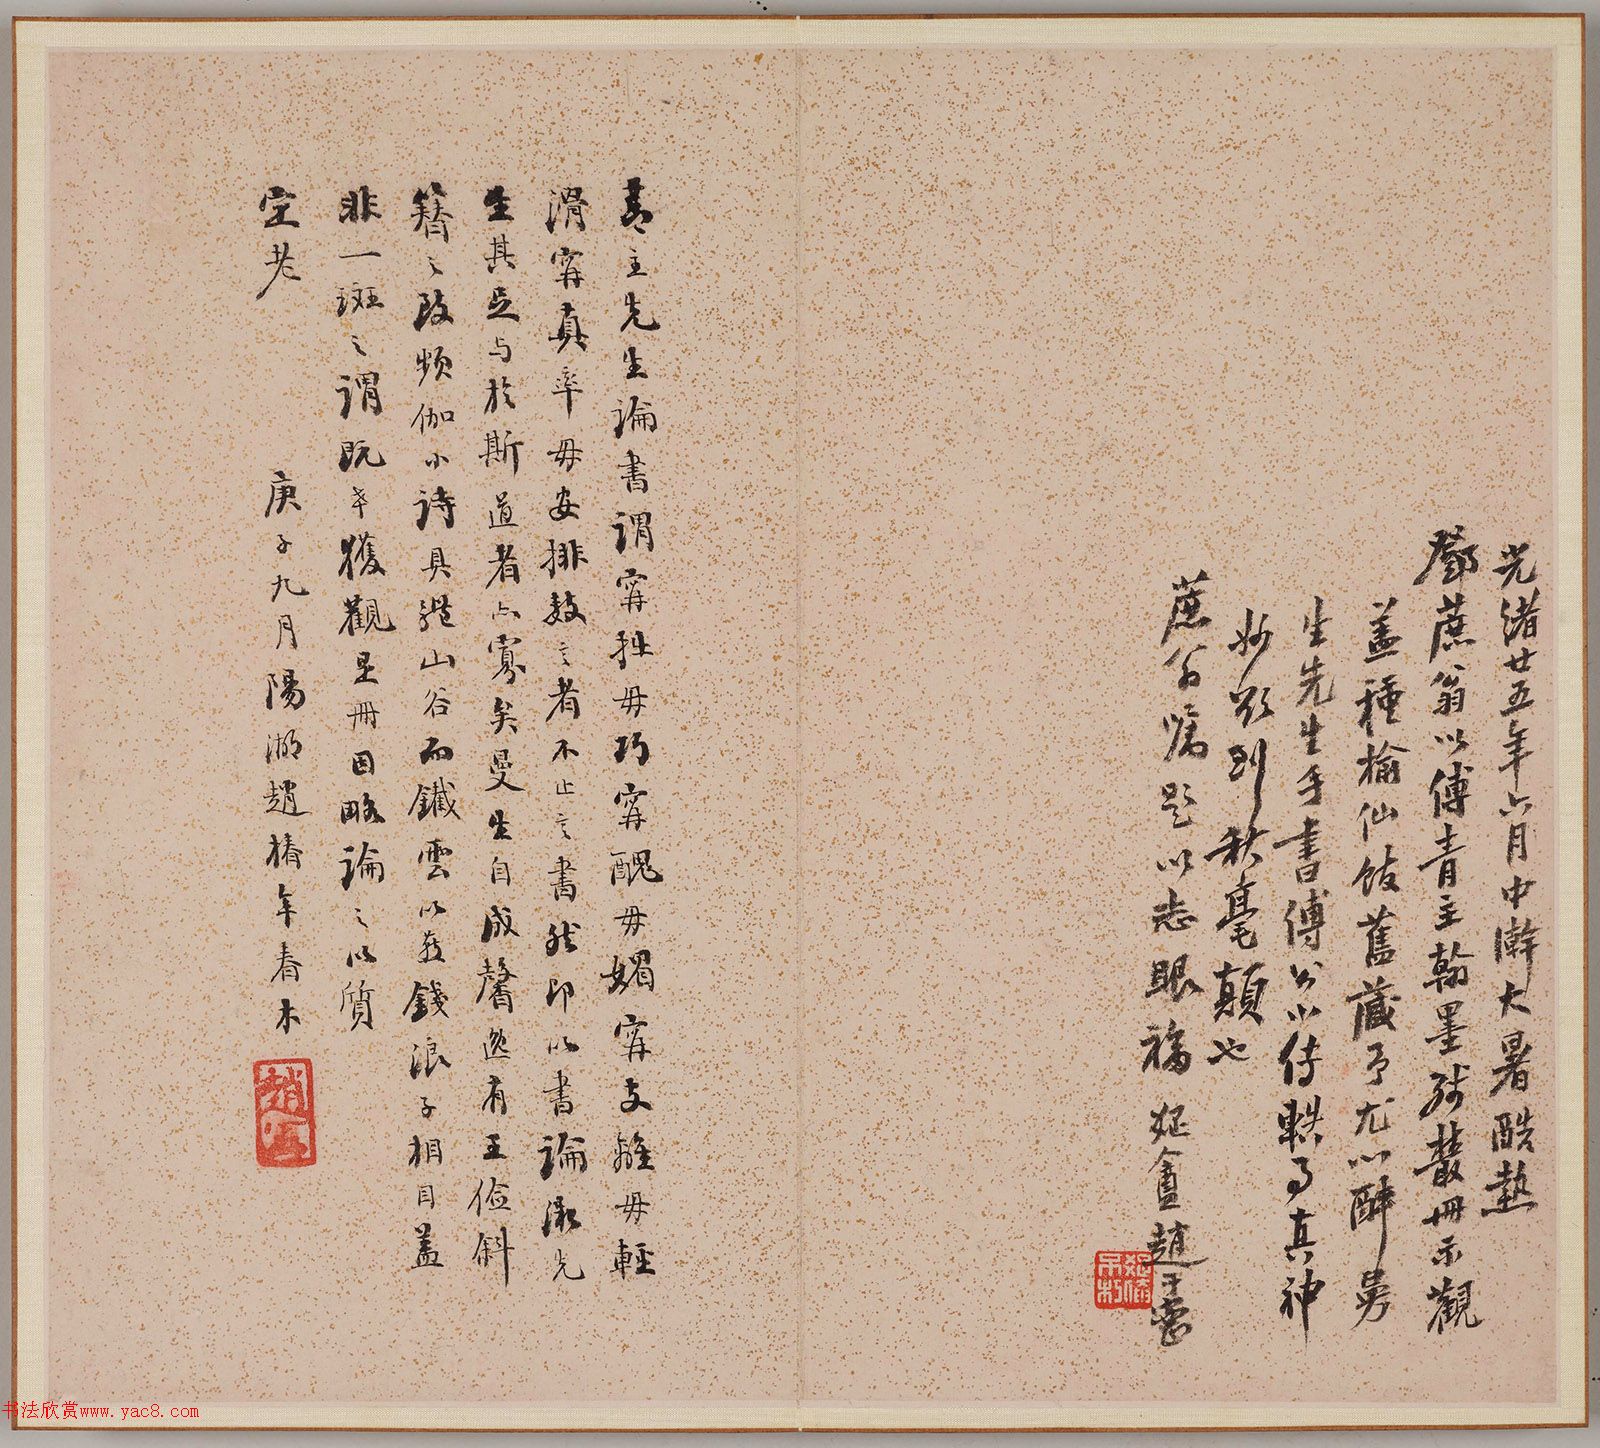 光緒廿五年六月中澣大暑酷熱
鄧蔗翁以傅青主翰墨殘叢冊示觀
蓋種榆仙館舊藏予尤心醉曼
生先生手書傅公小傳軼事真神
妙欲到秋毫顛也
蔗翁囑題以志眼福 妃盦趙于密
青主先生論書謂甯拙毋巧甯醜毋媚甯支離毋輕
滑甯真率毋安排斯言者不止言書然即以書論漱先
生其足与於斯道者亦寡矣曼生自成馨逸有王儉斜
簪之致頻伽小詩具體山谷而鐵雲以燕錢浪子相目蓋
非一斑之謂既幸獲觀是冊因略論之以質
定老
庚子九月陽湖趙椿年春木
书法欣赏www.yac8.com